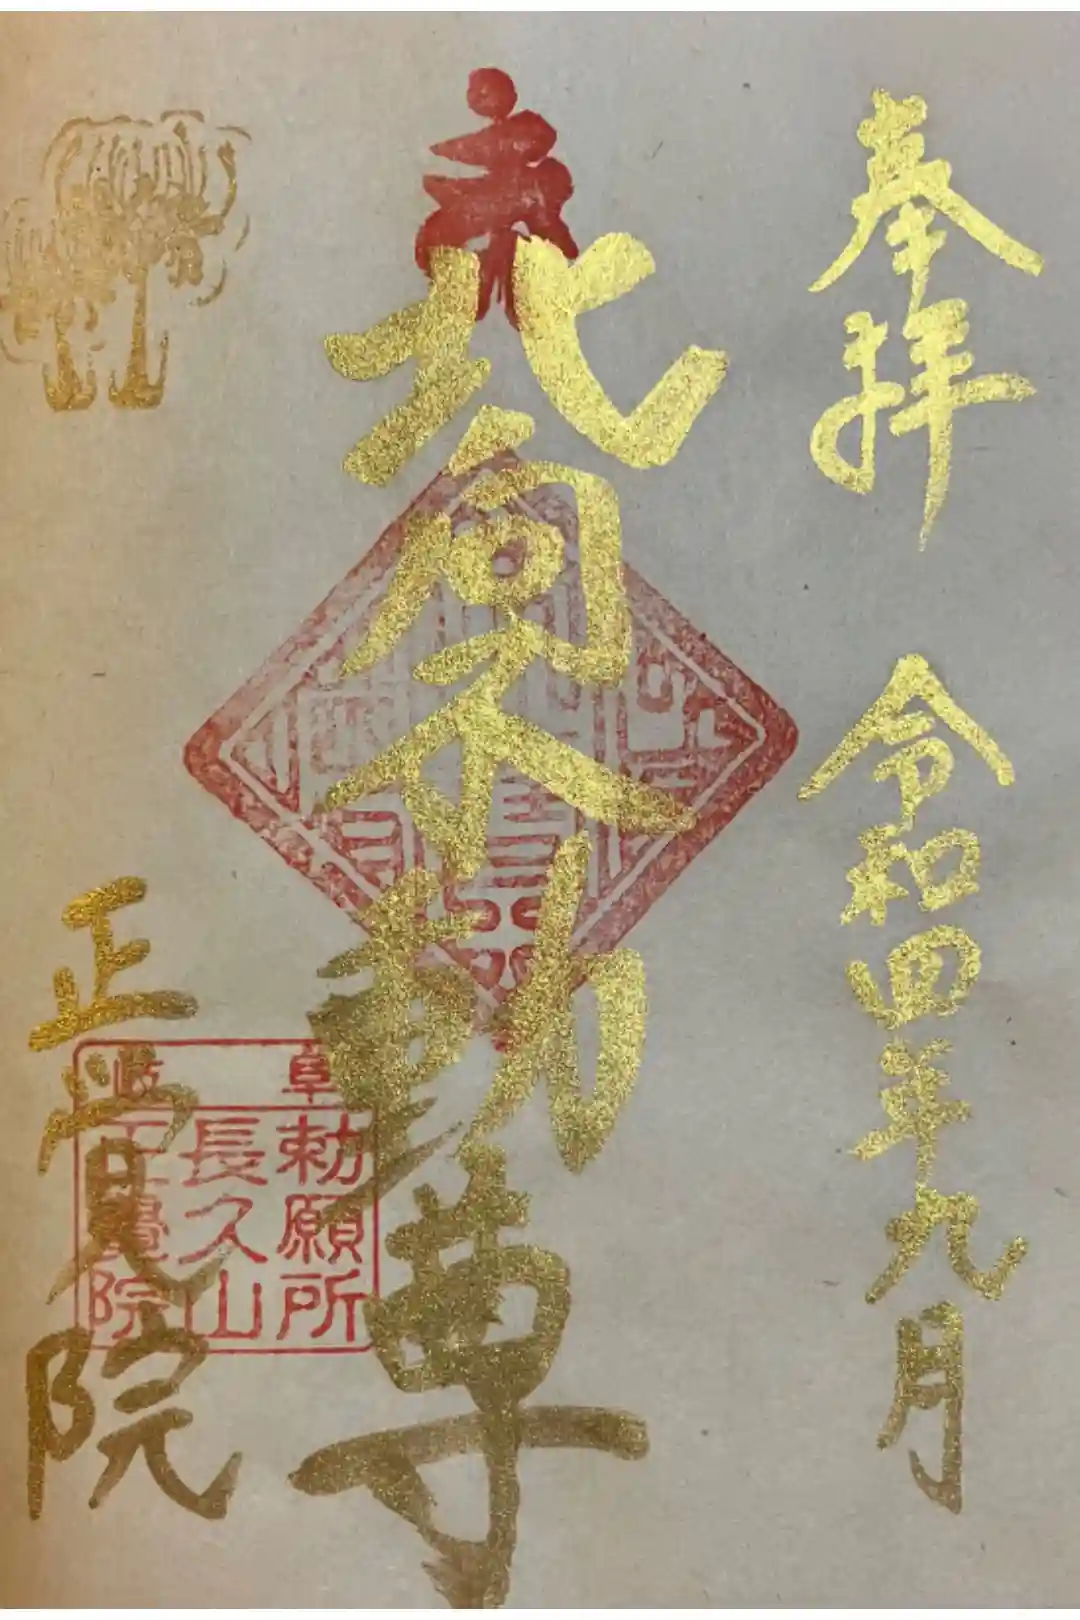 奉拝 令和四年九月
北向不動尊
正覚院
阜 岐
勅願所
長久山
正覺院